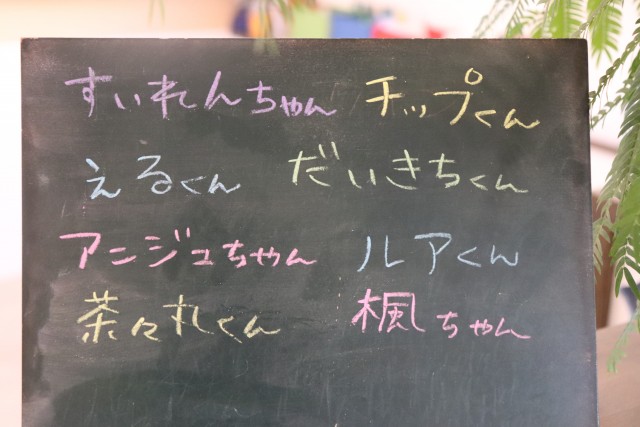 すいれんちゃん チップくん
えるくん だいきちくん
アンジュちゃん ルアくん
茶々丸くん 楓ちゃん